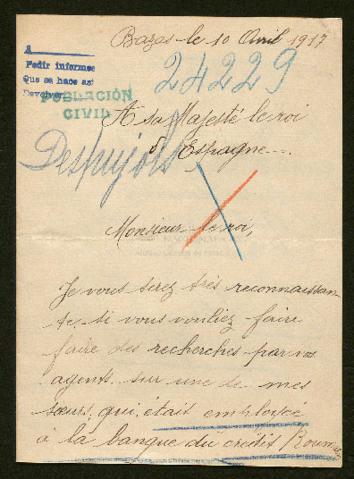 Bazas le 10 Avril 1917
A
Pedir informes
Que se hace así
Devolver
24229
POBLACIÓN
CIVIL
A sa Majesté le roi
d'Espagne
Despujols
Monsieur le roi,
Je vous serez très reconnaissan
te si vous vouliez faire
faire des recherches par vos
agents sur une de mes
sœurs, qui était employée
à la banque du crédit Roumain